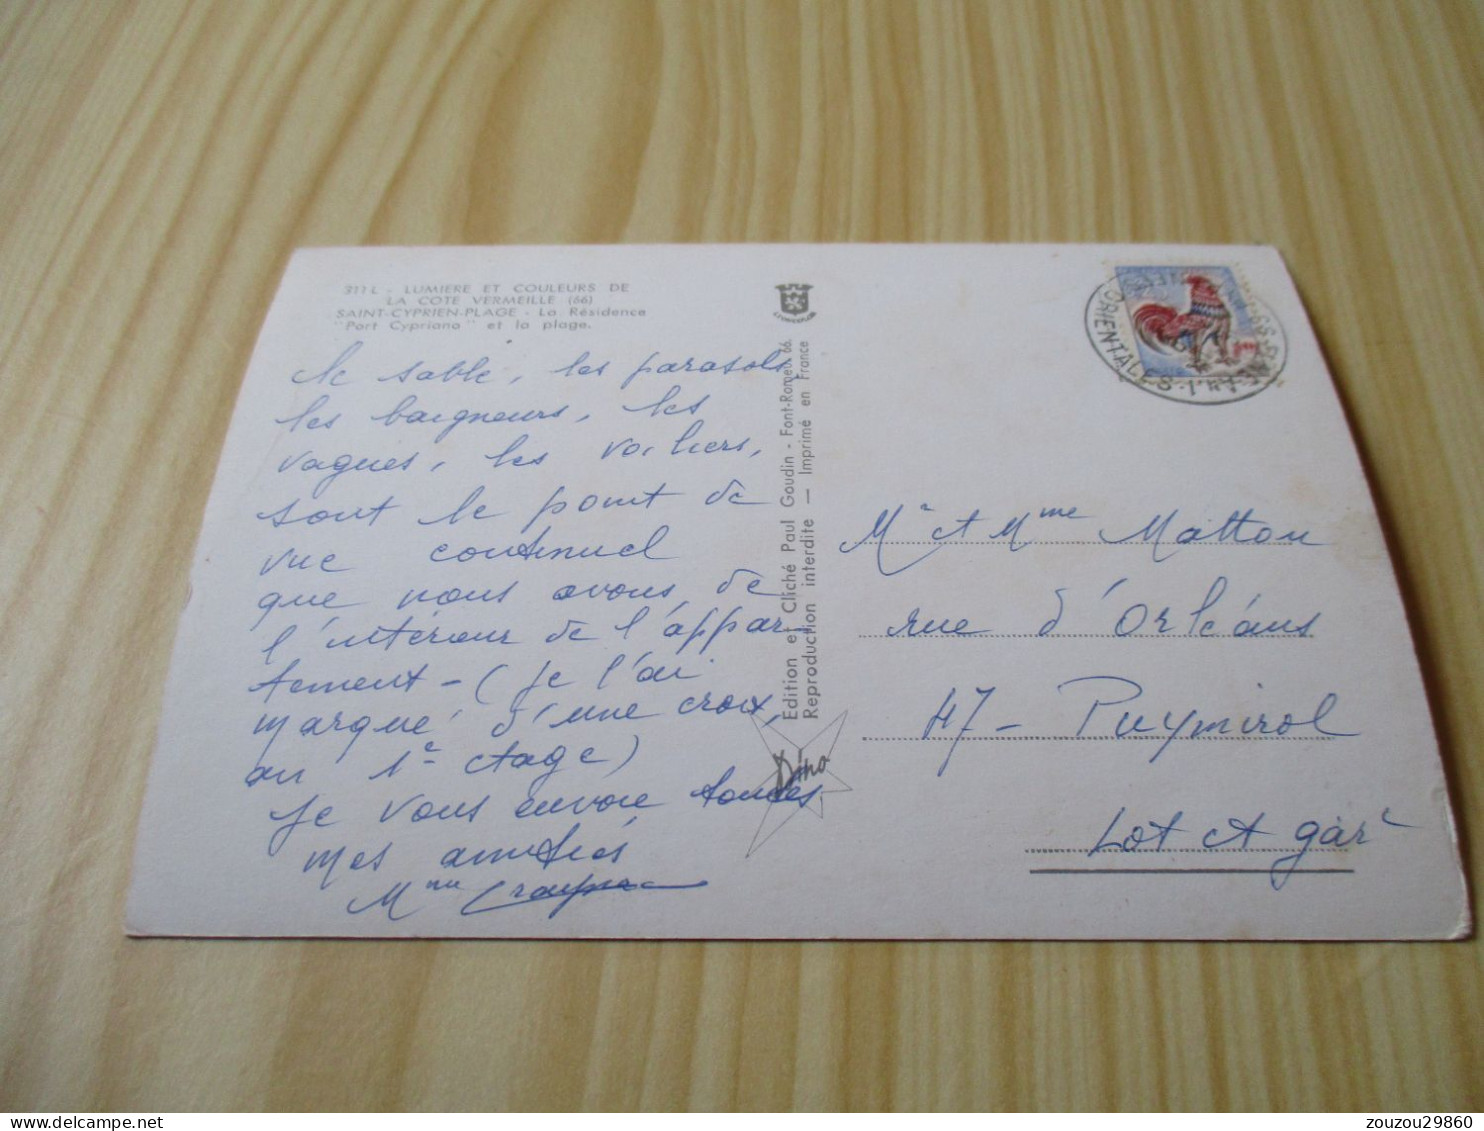 311 L - LUMIERE ET COULEURS DE
LA COTE VERMEILLE (66)
SAINT-CYPRIEN-PLAGE - La Résidence
"Port Cypriano" et la plage.
le sable, les parasols,
les baigneurs, les
vagues, les voiliers,
sont le point de
vue continuel
que nous avons de
l'intérieur de l'appar-
tement - (je l'ai
marqué d'une croix,
au 1e étage)
Je vous envoie toutes
mes amitiés
Mme
Edition et Cliché Paul Goudin - Font-Romeu 66.
Reproduction interdite — Imprimé en France
Dino
ORIENTALES
Mr et Mme Mattou
rue d'Orléans
47 - Puymirol
Lot et gar
zouzou29860